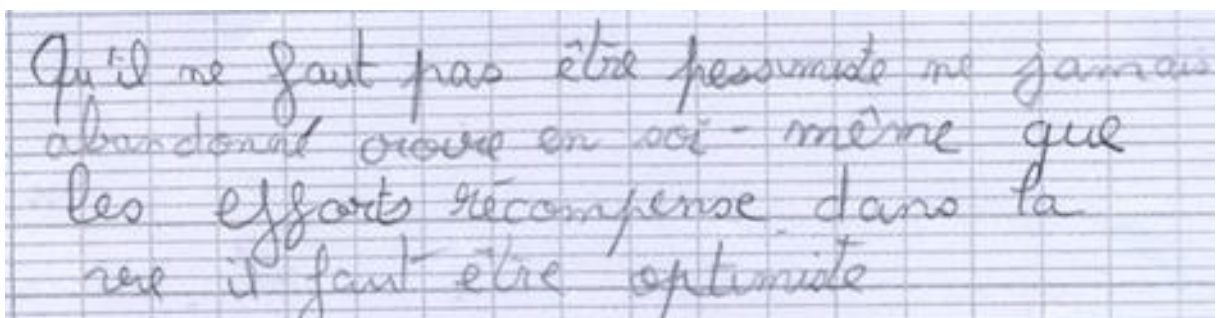 Qu'il ne faut pas être pessimiste ne jamais
abandonné croire en soi-même que
les efforts récompense dans la
vie il faut être optimiste